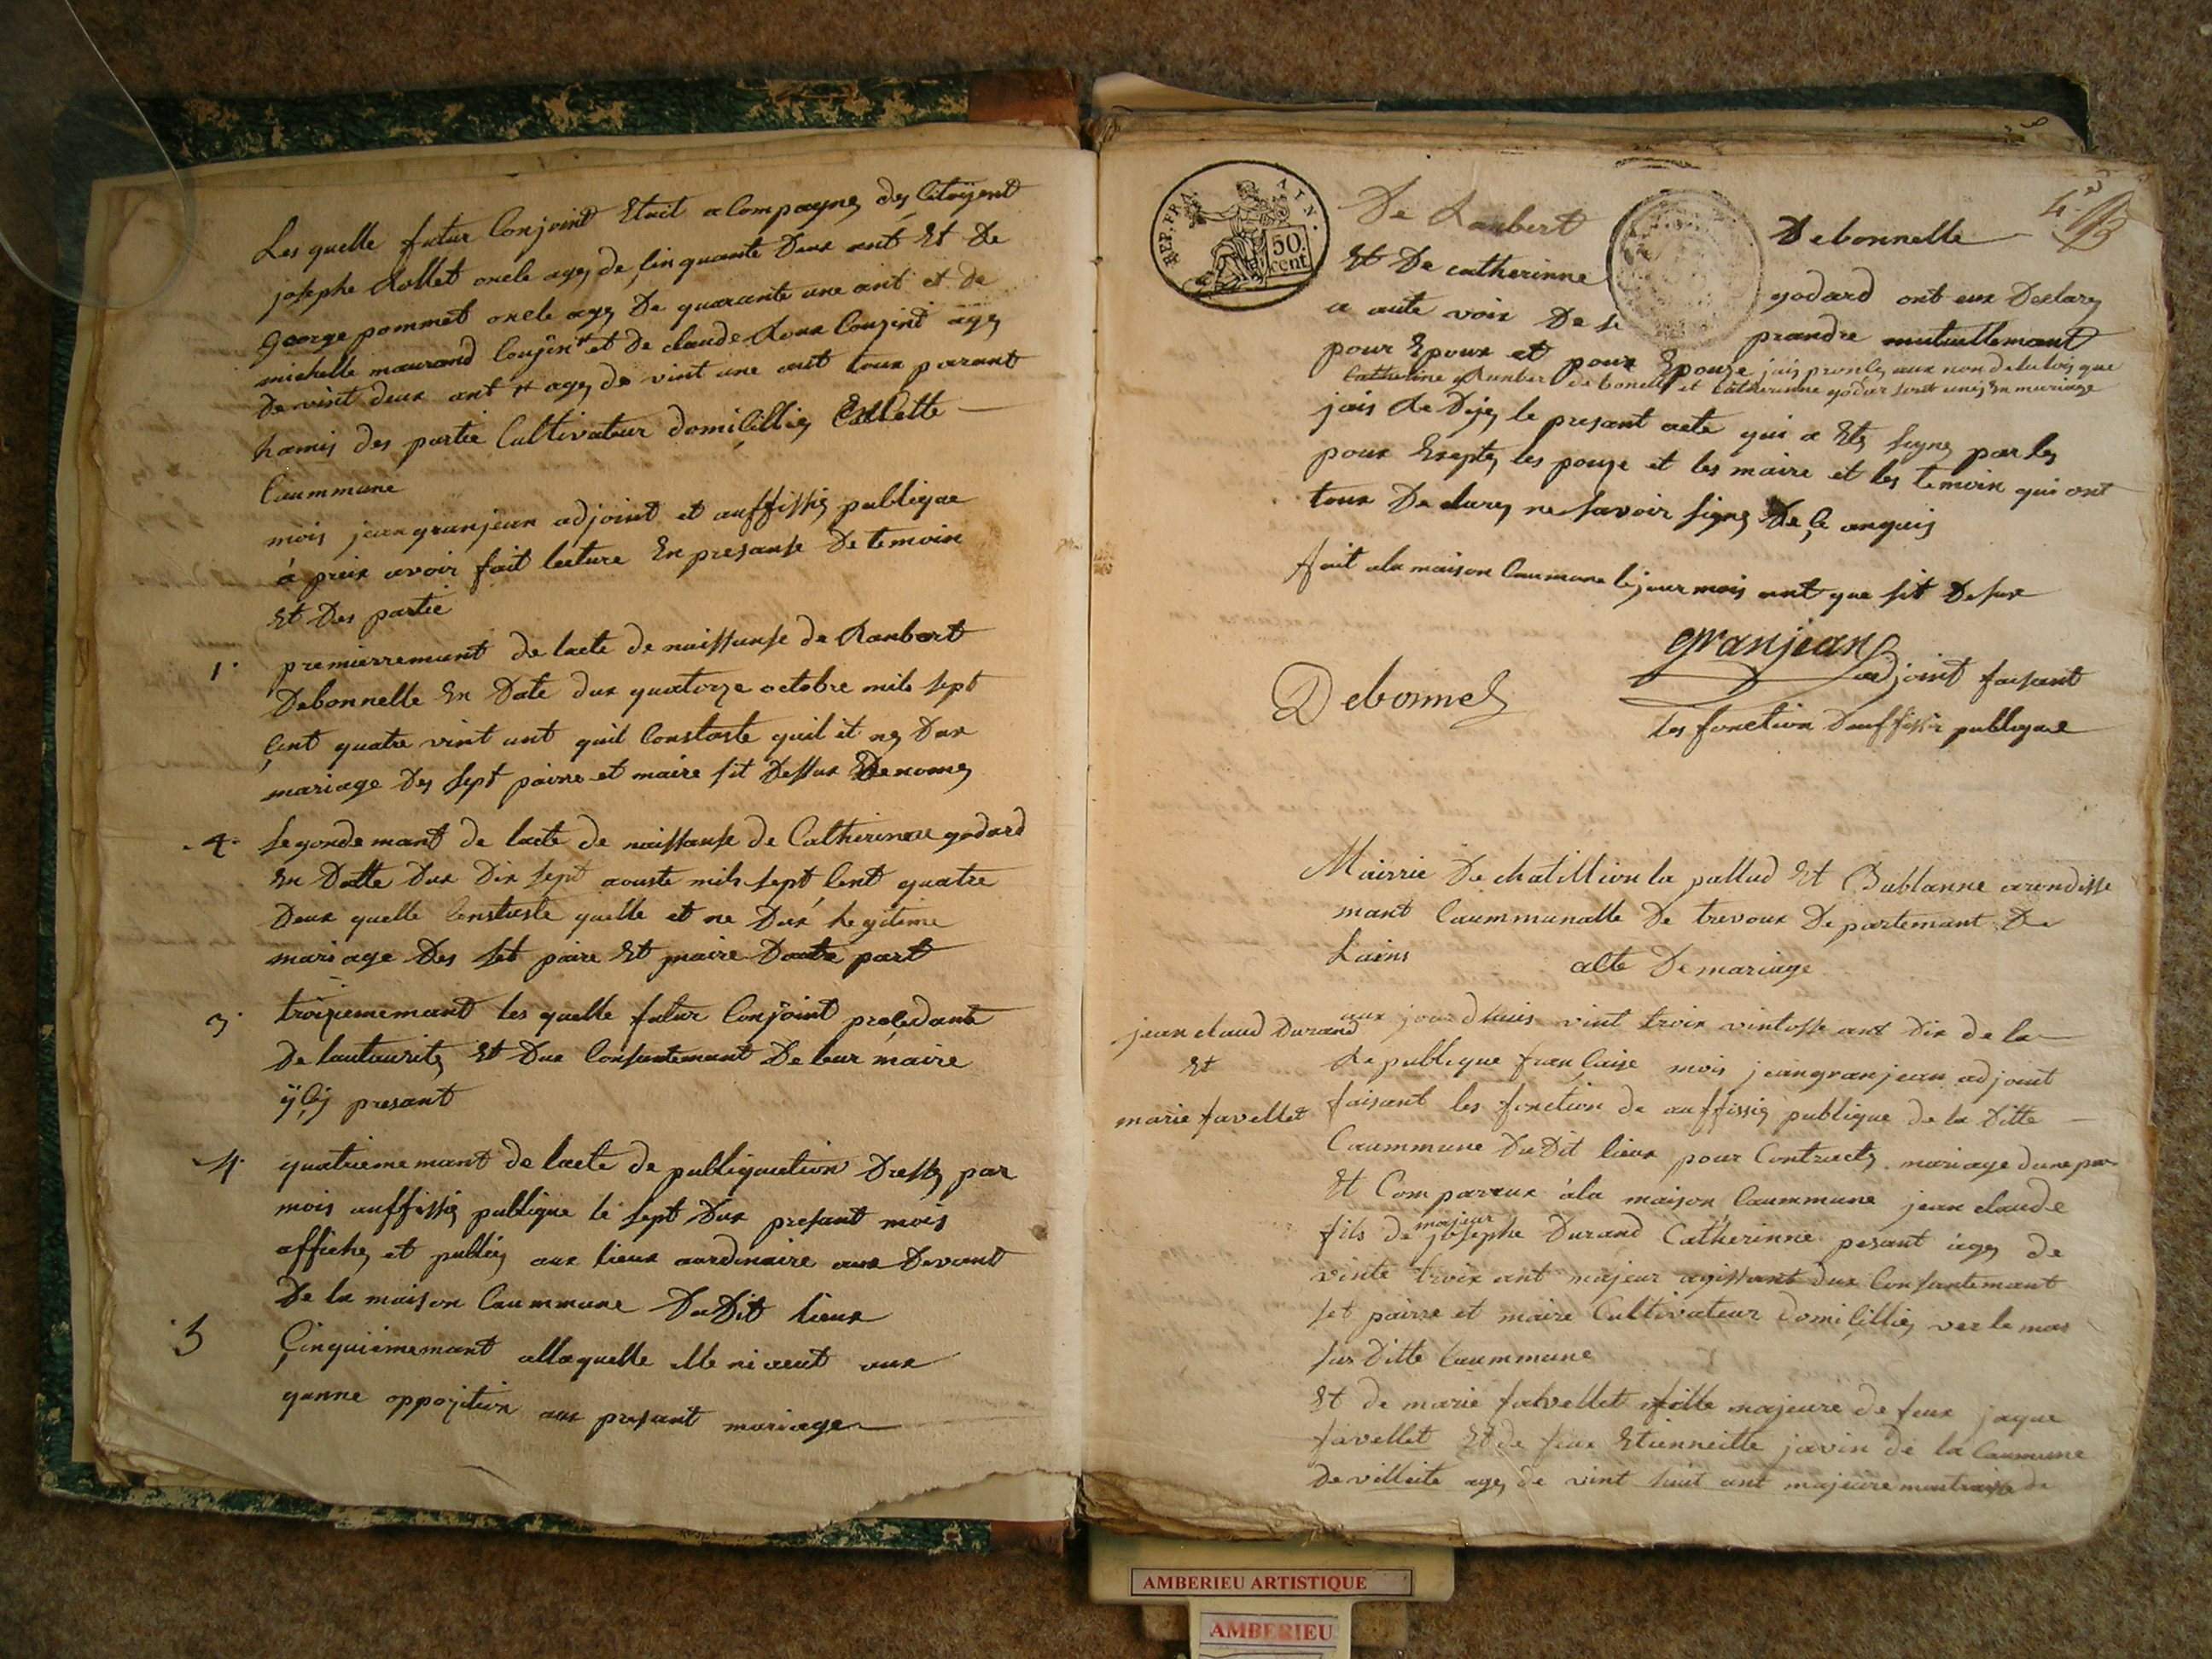 Les quelle futur Conjoint Etoit a Compagnez des Citoÿent
josephe Rollet oncle agez de sinquante Deux ant Et De
george pommet oncle agez De quarante une ant et de
michelle maurand Coujin et de claude Roux Couzint agez
De vint deux ant et agez de vint une ant tous parant
hamis des partie Cultivateur domicilliez
Caummune
mois jean granjean adjoint et auffissiez publique
á preix avoir fait lecture En presansse De temoin
Et Des partie
1· premierremant de lacte de naissansse de Raubert
Debonnelle En Date dux quatorze octobre mils sept
çent quatre vint unt quil Constaste quil et nez Dux
mariage Des sept paire et maire sit Dessux Denomez
segondemant de lacte de naissansse de Catherinne godard
En Datte Dux Dix sept aouste mils sept Cent quatre
Deux quelle Censtaste quelle et ne Dux Legitime
mariage Des set paire Et maire Dautre part
3· troizememant les quelle futur Conjoint proledante
De lautauritez Et Dux Consantemant De leur maire
ÿçÿ presant
4· quatriememant de lacte de publiquation Dressez par
mois auffissiez publique le sept Dux presant mois
affichez et publiez aux lieux aurdinaire aux Devant
De la maison Caummune DuDit lieux
5 Çinquiememant allaquelle elle ni aeut aux
qunne oppozition aux presant mariage
REP. FRA. AIN.
50. cent
De Raubert Debonnelle
Et De catherinne godard ont eux Declarez
a aute voix De se prandre mutuellemant
pour Epoux et pour Epouze jais pronlez aux non delalois que
Debonelle et Catherinne godar sont unis En mariage
jais Redijez le presant acte qui a Etez signez par les
poux Exeptez les pouze et les maire et les temoin qui ont
tous Declarez ne savoir signez De çe anquis
fait ala maison Caumune le jour mois ant que sit Desux
granjean
adjoint faisant
Debonnel
les fonction Dauffissir publique
Mairrie De chatillion la pallud Et Bublanne arondisse
mant Caummunalle De trevoux Departemant De
Lains
alte De mariage
jean claud Durand
Et
marie favellet
aux jourdhuis vint troix vintosse ant Dix de la
Republique franCaise mois jeangranjean adjoint
faisant les fonction de auffissiez publique de la Ditte
Caummune DuDit lieux pour Contractez mariage dune par
Et Comparaux àla maison Caummune jean claude
majeur
fils de josephe Durand Catherinne pesant àgez de
vinte troix ant majeur agissant dux Consantemant
set pairre et maire Cultivateur domiçilliez ver le mas
sus Ditte Caummune
Et de marie favellet fille majeure de feux jaque
favellet Et de feux Etienneitte javin de la Caumune
De villeite agez de vint huit ant majeure
AMBERIEU ARTISTIQUE
AMBERIEU